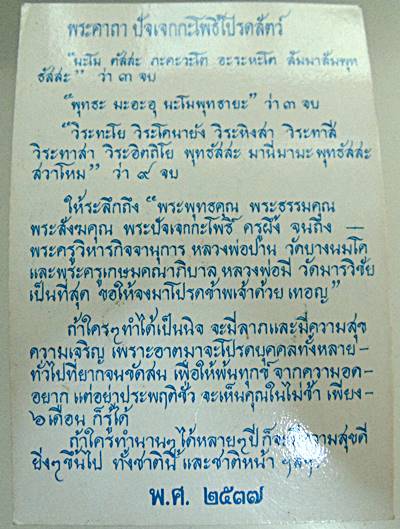 พระคาถา ปัจเจกกะโพธิ์โปรดสัตว์
"นะโม ตัสสะ ภะคะวะโต อะระหะโต สัมมาสัมพุท
ธัสสะ" ว่า ๓ จบ
"พุทธะ มะอะอุ นะโมพุทธายะ" ว่า ๓ จบ
"วิระทะโย วิระโคนายัง วิระหิงสา วิระทาสี
วิระทาสา วิระอิตถิโย พุทธัสสะ มานีมามะ พุทธัสสะ
สวาโหม" ว่า ๙ จบ
ให้ระลึกถึง "พระพุทธคุณ พระธรรมคุณ
พระสังฆคุณ พระปัจเจกกะโพธิ์ ครูผึ้ง จนถึง —
พระครูวิหารกิจจานุการ หลวงพ่อปาน วัดบางนมโค
และพระครูเกษมคณาภิบาล หลวงพ่อมี วัดมารวิชัย
เป็นที่สุด ขอให้จงมาโปรดข้าพเจ้าด้วย เทอญ"
ถ้าใครๆทำได้เป็นนิจ จะมีลาภและมีความสุข
ความเจริญ เพราะอาตมาจะโปรดบุคคลทั้งหลาย -
ทั่วไปที่ยากจนขัดสน เพื่อให้พ้นทุกข์ จากความอด-
อยาก แต่อย่าประพฤติชั่ว จะเห็นคุณในไม่ช้า เพียง-
๖ เดือน ก็รู้ได้
ถ้าใครทำนานๆ ได้หลายๆปี ก็จะมีความสุขดี
ยิ่งๆขึ้นไป ทั้งชาตินี้ และชาติหน้า
พ.ศ. ๒๕๓๗